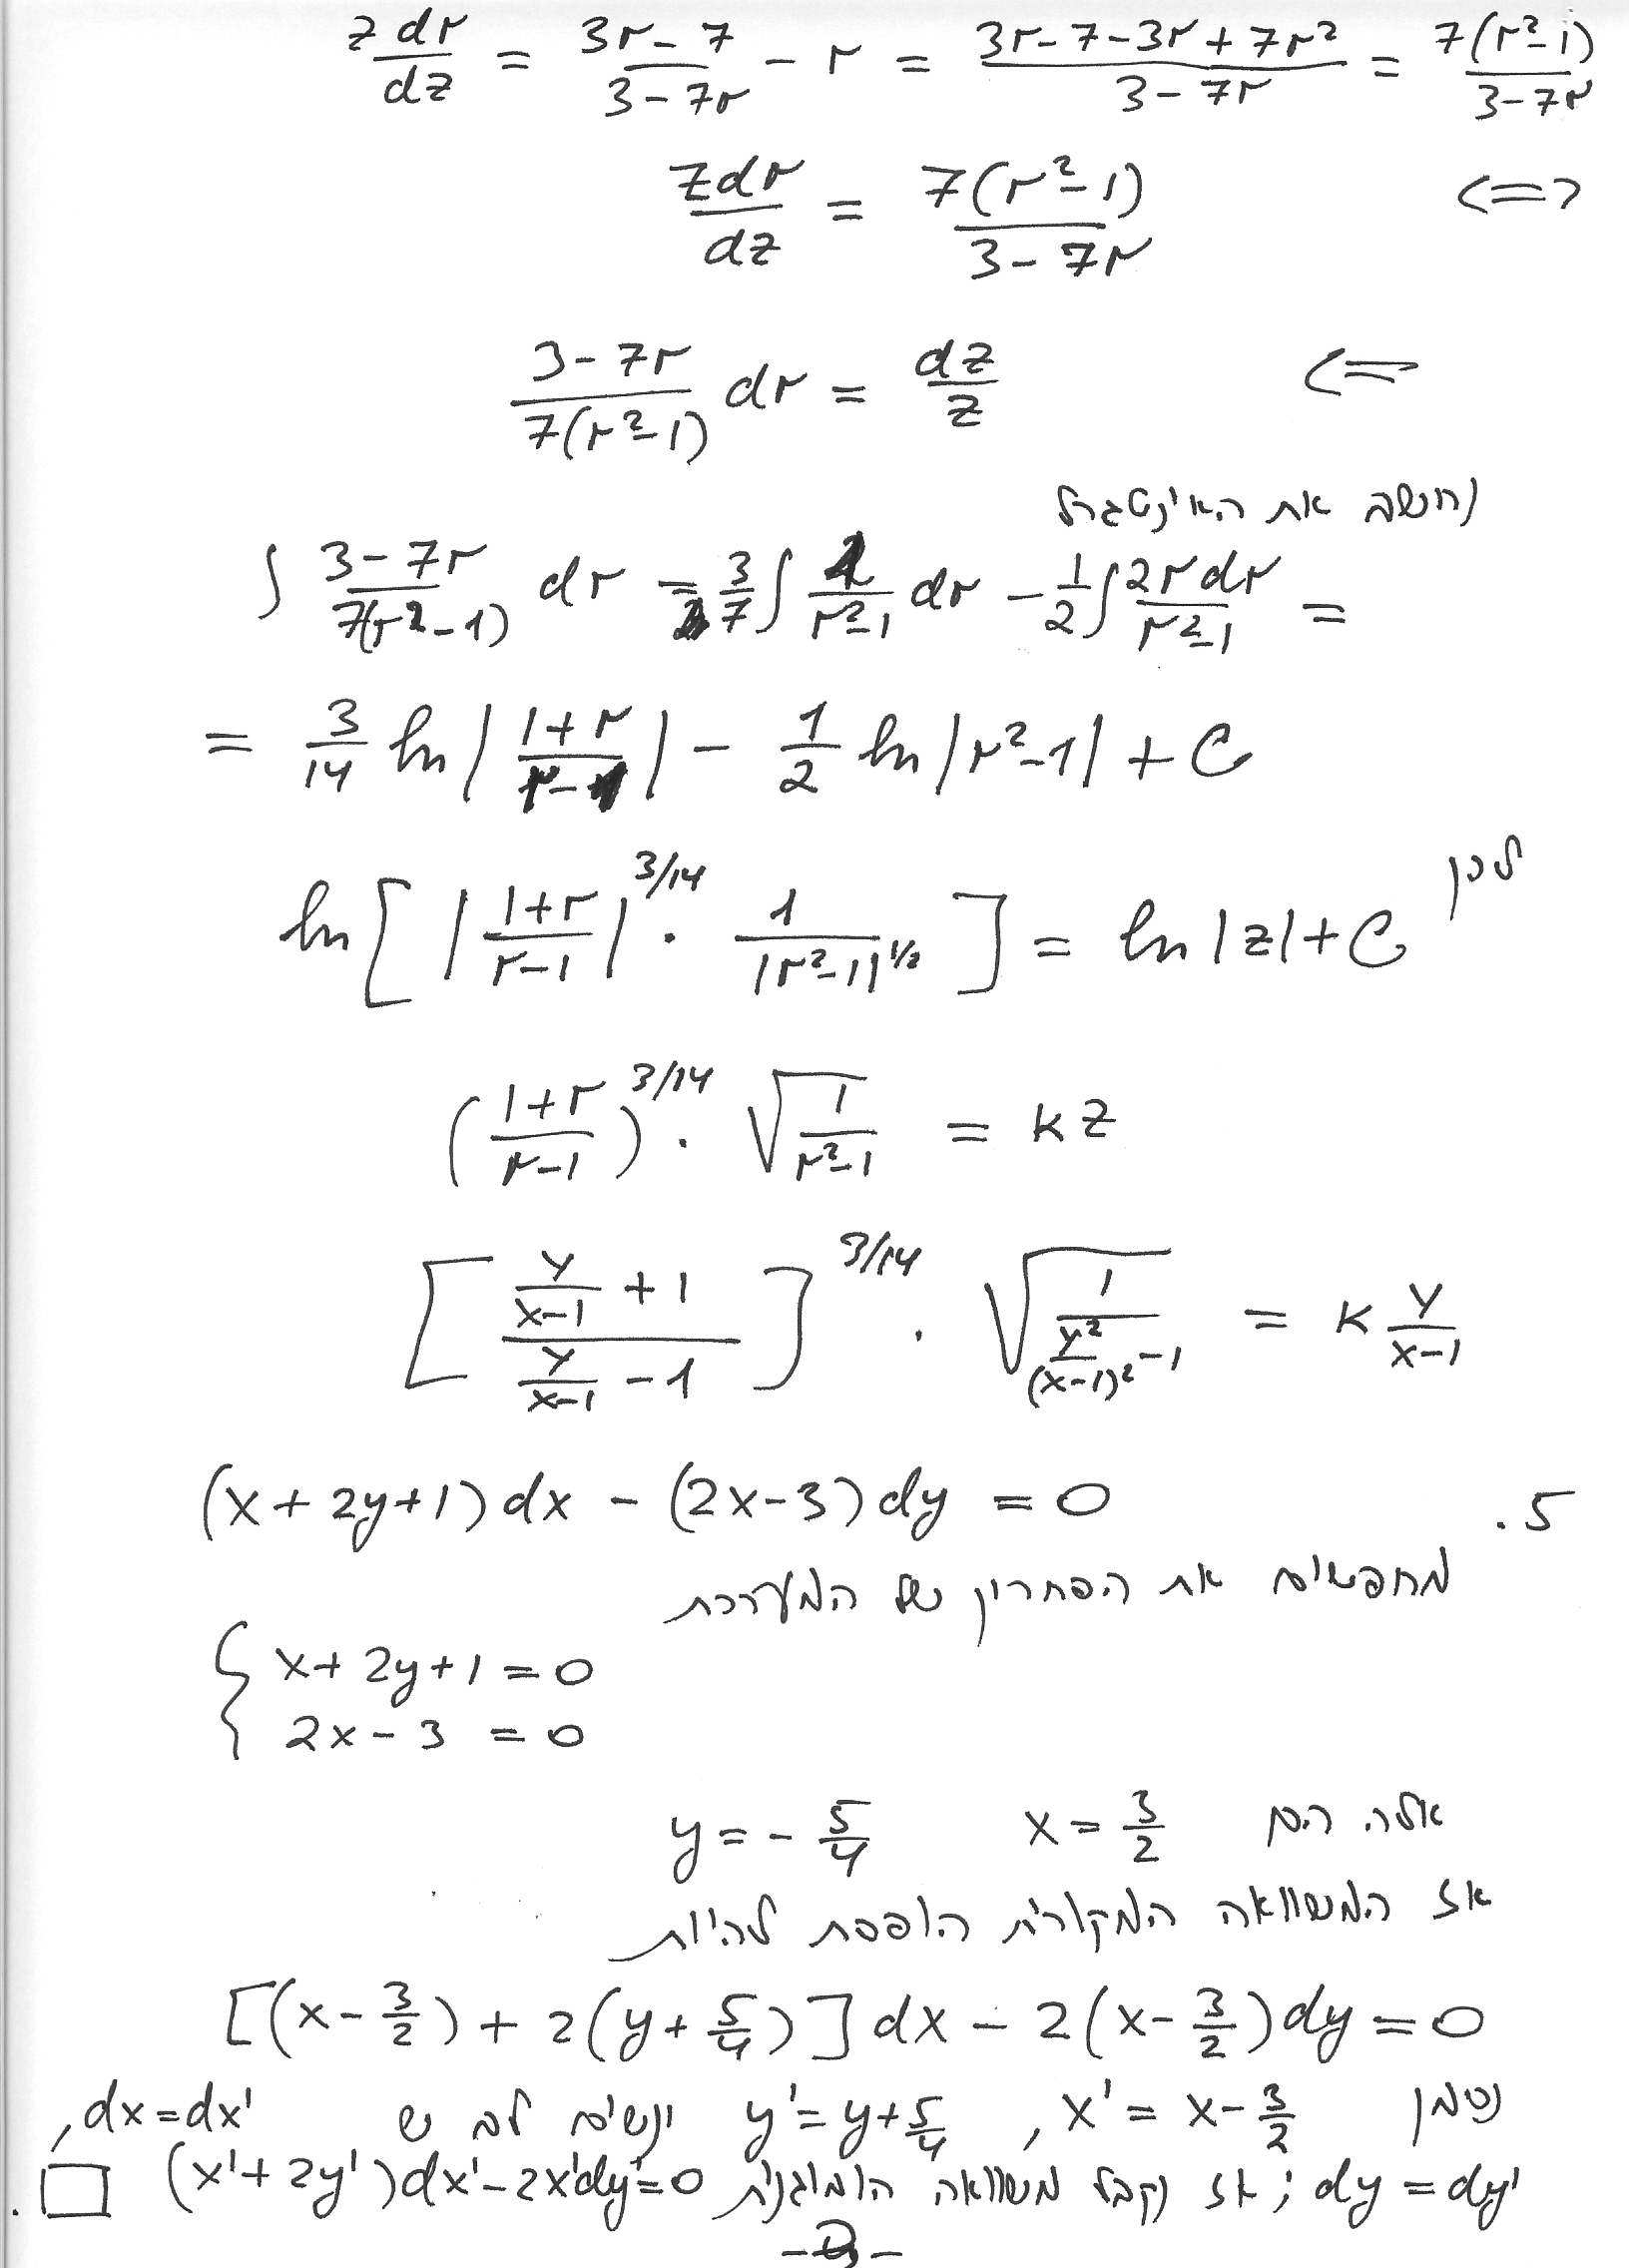 z dr/dz = (3r-7)/(3-7r) - r = (3r-7-3r+7r²)/(3-7r) = 7(r²-1)/(3-7r)
zdr/dz = 7(r²-1)/(3-7r) <=>
(3-7r)/(7(r²-1)) dr = dz/z <=
נחשב את האינטגרל
∫ (3-7r)/(7(r²-1)) dr = 3/7 ∫ 1/(r²-1) dr - 1/2 ∫ 2rdr/(r²-1) =
= 3/14 ln|(1+r)/(r-1)| - 1/2 ln|r²-1| + C
לכן ln[|(1+r)/(r-1)|^(3/14) · 1/|r²-1|^(1/2)] = ln|z|+C
((1+r)/(r-1))^(3/14) · √(1/(r²-1)) = kz
[(y/(x-1) + 1)/(y/(x-1) - 1)]^(3/14) · √(1/(y²/(x-1)² - 1)) = k y/(x-1)
5. (x+2y+1)dx - (2x-3)dy = 0
מחפשים את הפתרון של המערכת
{ x+2y+1=0
2x-3 = 0
אלה הם x = 3/2 y = -5/4
אז המשוואה המקורית הופכת להיות
[(x-3/2)+2(y+5/4)]dx - 2(x-3/2)dy = 0
נסמן x' = x-3/2, y' = y+5/4 ונשים לב ש dx=dx',
dy=dy'; אז נקבל משוואה הומוגנית (x'+2y')dx'-2x'dy'=0 □.